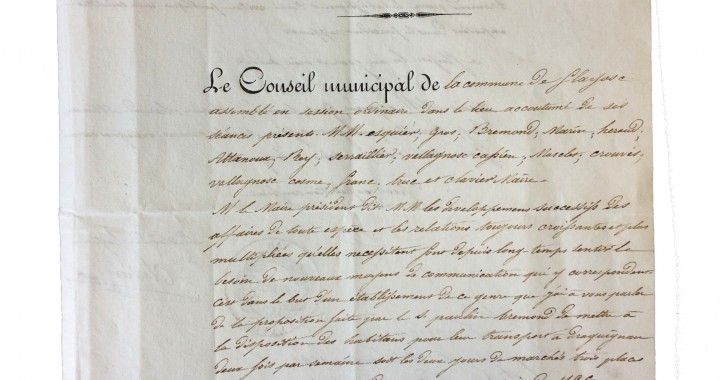 Le Conseil municipal de la commune de flayosc
assemblé en session ordinaire dans le lieu accoutumé de ses
séances présents M.M. esquier, gros, Bremond, Marin, heraud,
Attanoux, Rey, serraillier, vallagnosc Mascles, crouvès,
vallagnosc cosme, franc, truc et clavier Maire.
M le Maire président dit M.M les developpemens successifs des
affaires de toute espèce et les relations toujours croissantes et plus
multipliées qu'elles necessitent font depuis long-temps sentir le
besoin de nouveaux moyens de communication qui y correspondent
c'est dans le but d'un etablissement de ce genre que j'ai à vous parler
de la proposition faite par le s.r paulin bremond de mettre à
la disposition des habitans pour leur transport à draguignan
deux fois par semaine soit les deux jours de marchés trois places